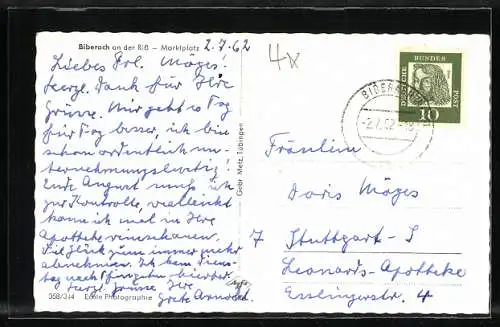 Biberach an der Riß – Marktplatz 2.7.62
Liebes Frl. Möges!
Herzl. Dank für Ihre
Grüsse. Mir geht es Tag
für Tag besser, ich bin
schon ordentlich un-
ternehmungslustig!
Ende August muß ich
zur Kontrolle, vielleicht
kann ich mal in Ihre
Apotheke reinschauen.
immer mehr
abnehmen. Ich kam Diens-
tag nach Pfingsten hierher.
Herzl. Grüsse, Ihre
Grete Arnold
058/344 Echte Photographie
Gebr. Metz, Tübingen
4x
DEUTSCHE BUNDES POST
10
BIBERACH
-2.7.62
Fräulein
Doris Möges
7 Stuttgart-S
Leonards-Apotheke
Esslingerstr. 4